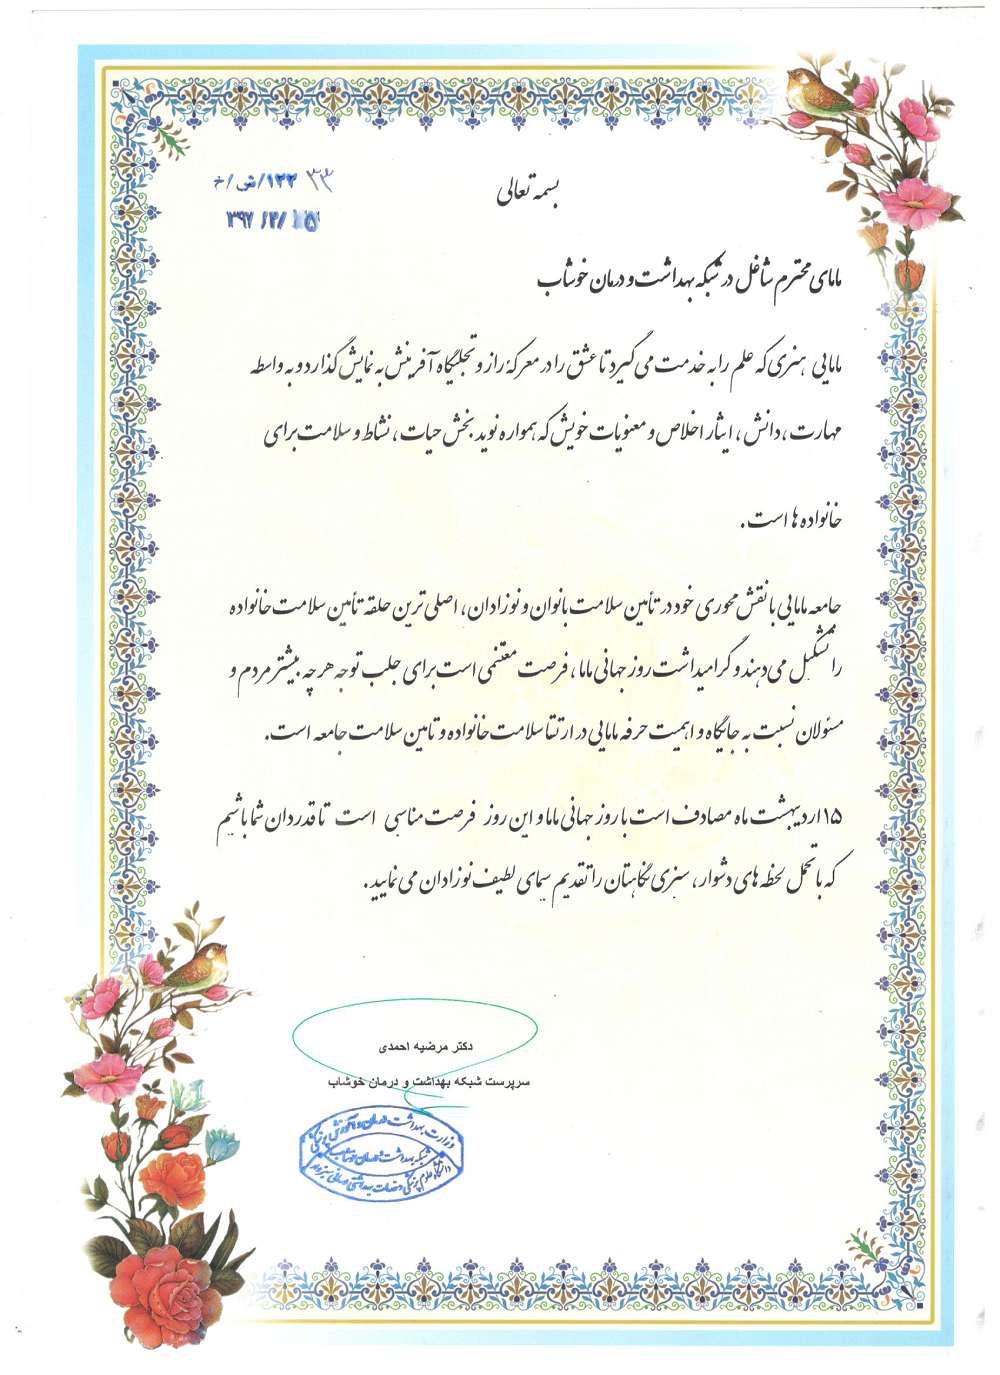 بسمه تعالی
۳۳ ۱۲۲/ش/خ
۱۳۹۷/۲/۱۵
مامای محترم شاغل در شبکه بهداشت و درمان خوشاب
مامایی هنری که علم را به خدمت می گیرد تا عشق را در معرکهٔ راز و تجلیگاه آفرینش به نمایش گذارد و به واسطه
مهارت ، دانش ، ایثار اخلاص و معنویات خویش که همواره نوید بخش حیات ، نشاط و سلامت برای
خانواده ها است .
جامعه مامایی با نقش محوری خود در تأمین سلامت بانوان و نوزادان ، اصلی ترین حلقه تأمین سلامت خانواده
را تشکیل می دهند و گرامیداشت روز جهانی ماما ، فرصت مغتنمی است برای جلب توجه هر چه بیشتر مردم و
مسئولان نسبت به جایگاه و اهمیت حرفه مامایی در ارتقا سلامت خانواده و تامین سلامت جامعه است.
۱۵ اردیبهشت ماه مصادف است با روز جهانی ماما و این روز فرصت مناسبی است تا قدردان شما باشیم
که با تحمل لحظه های دشوار ، سبزی نگاهتان را تقدیم سیمای لطیف نوزادان می نمایید .
دکتر مرضیه احمدی
سرپرست شبکه بهداشت و درمان خوشاب
وزارت بهداشت درمان و آموزش پزشکی
شبکه بهداشت و درمان خوشاب
دانشگاه علوم پزشکی و خدمات بهداشتی درمانی سبزوار